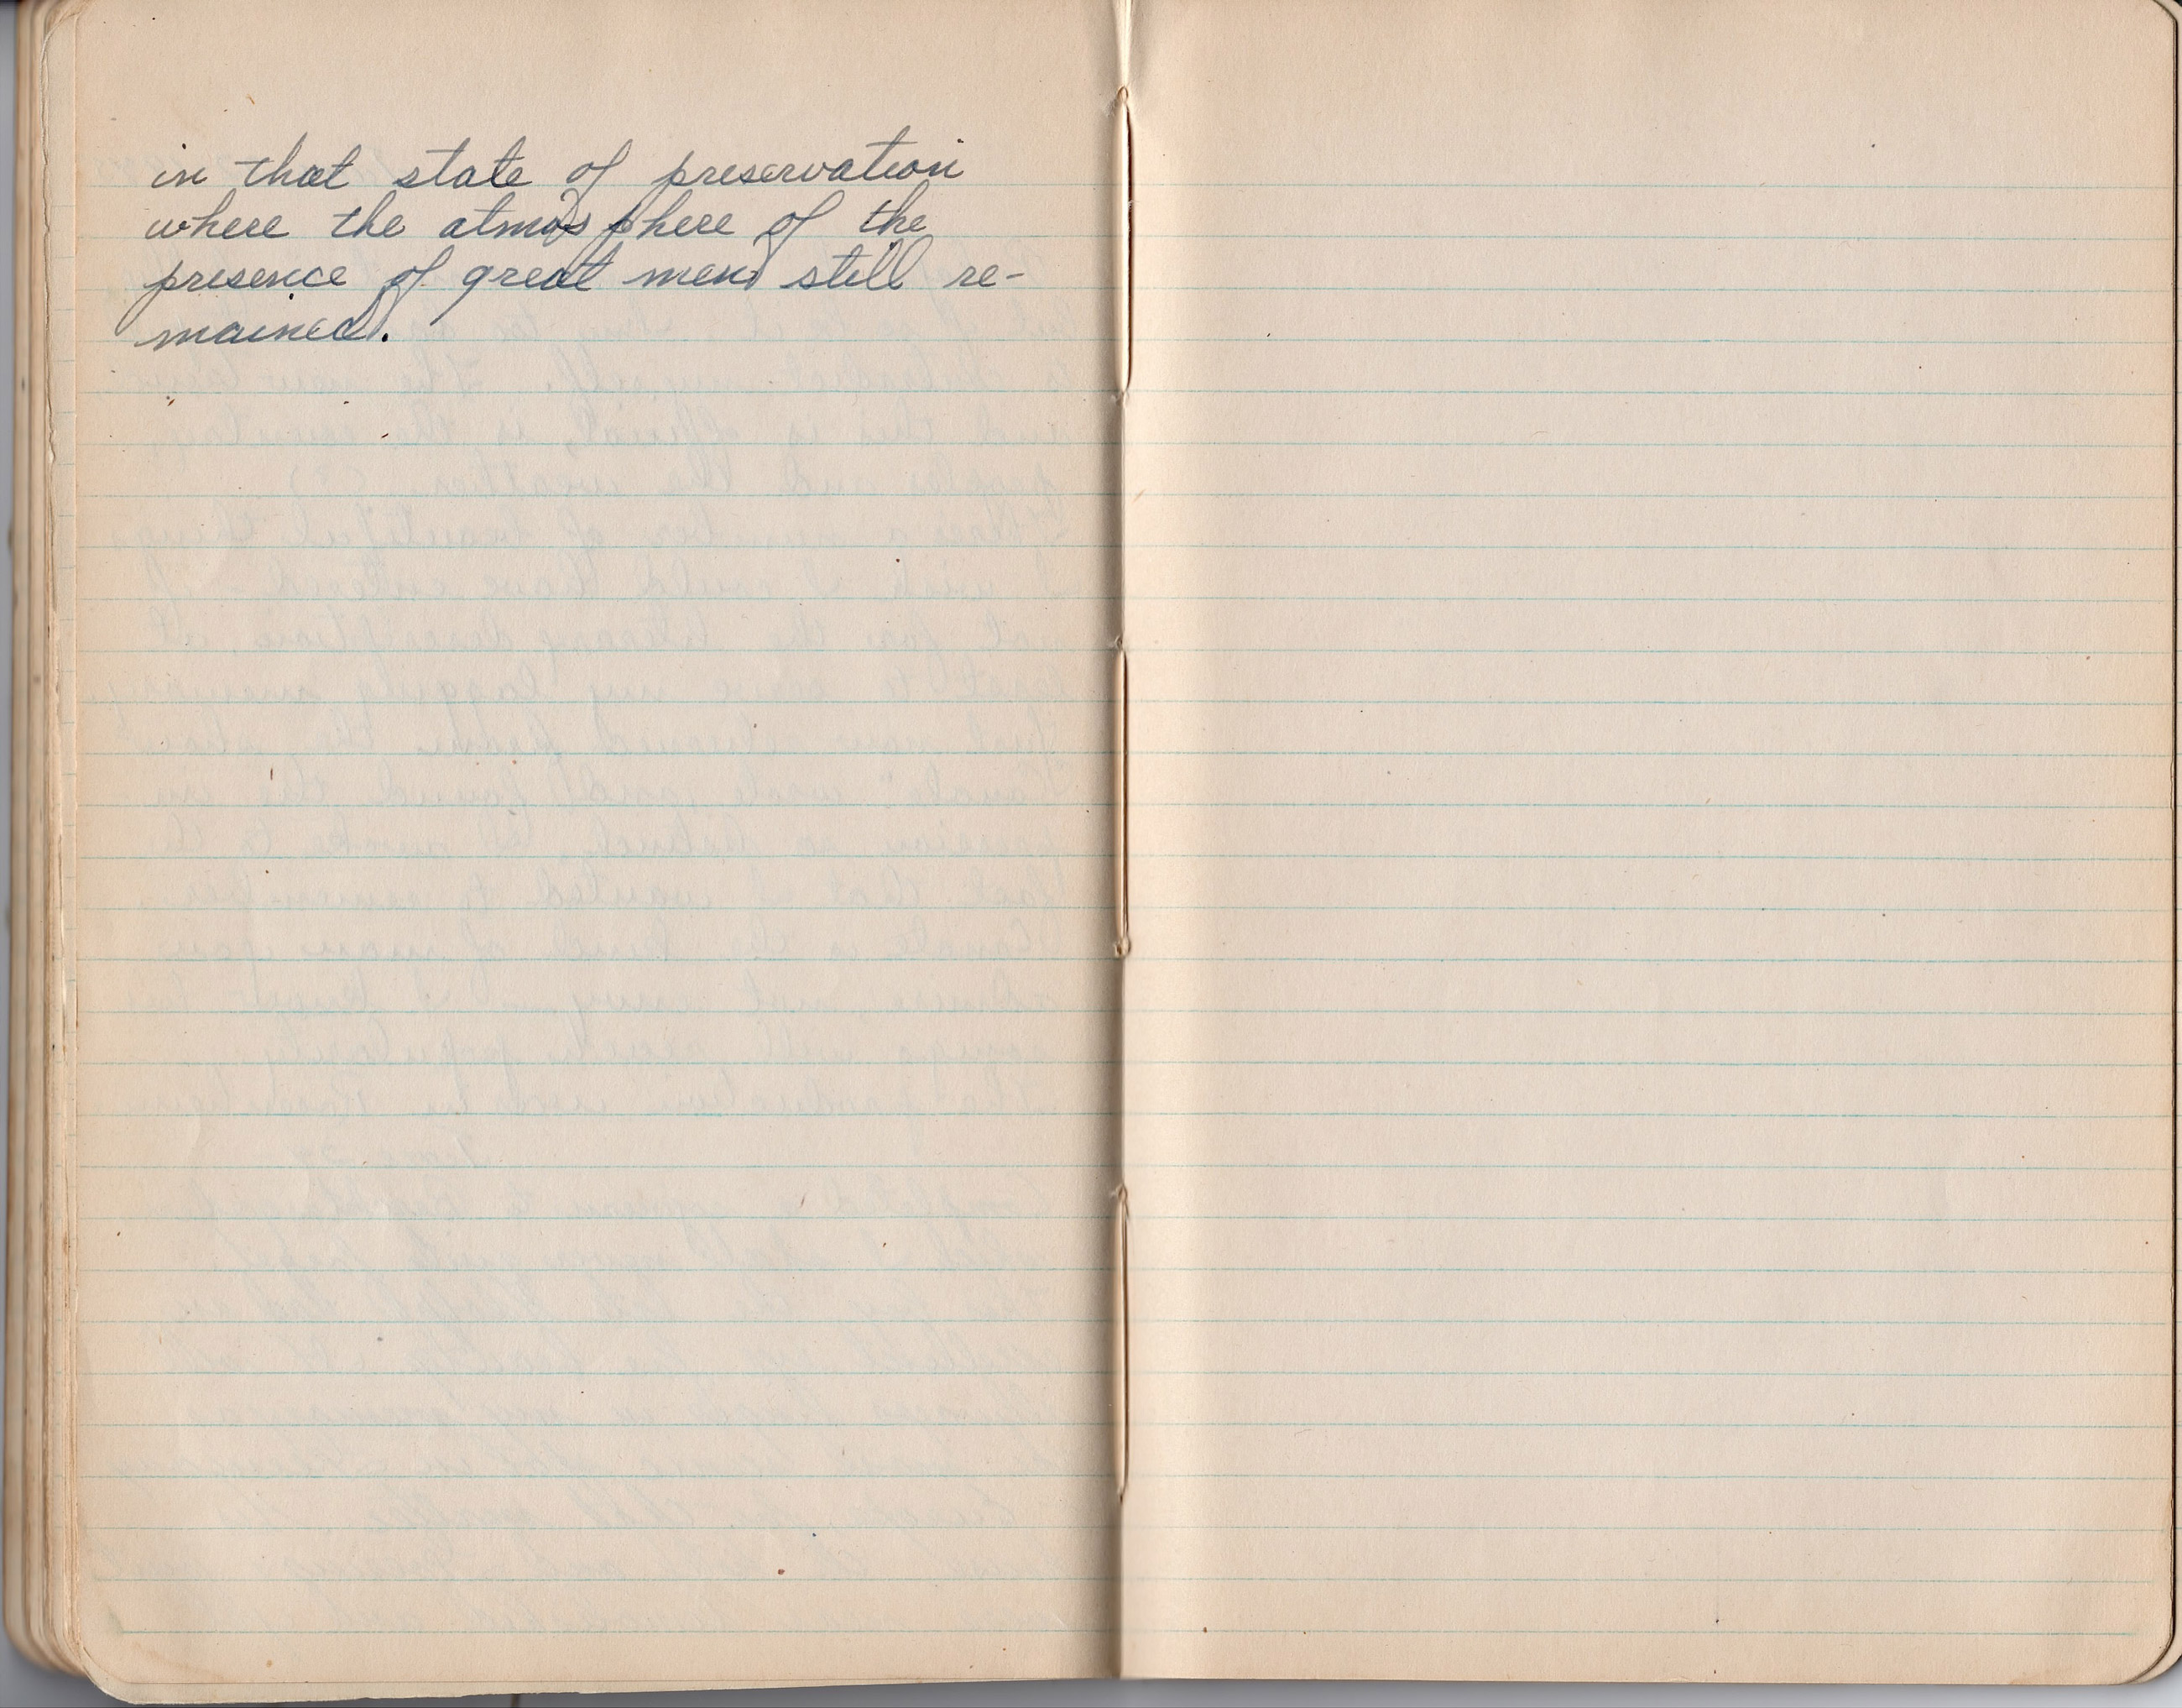 in that state of preservation
where the atmosphere of the
presence of great men still re-
mained.